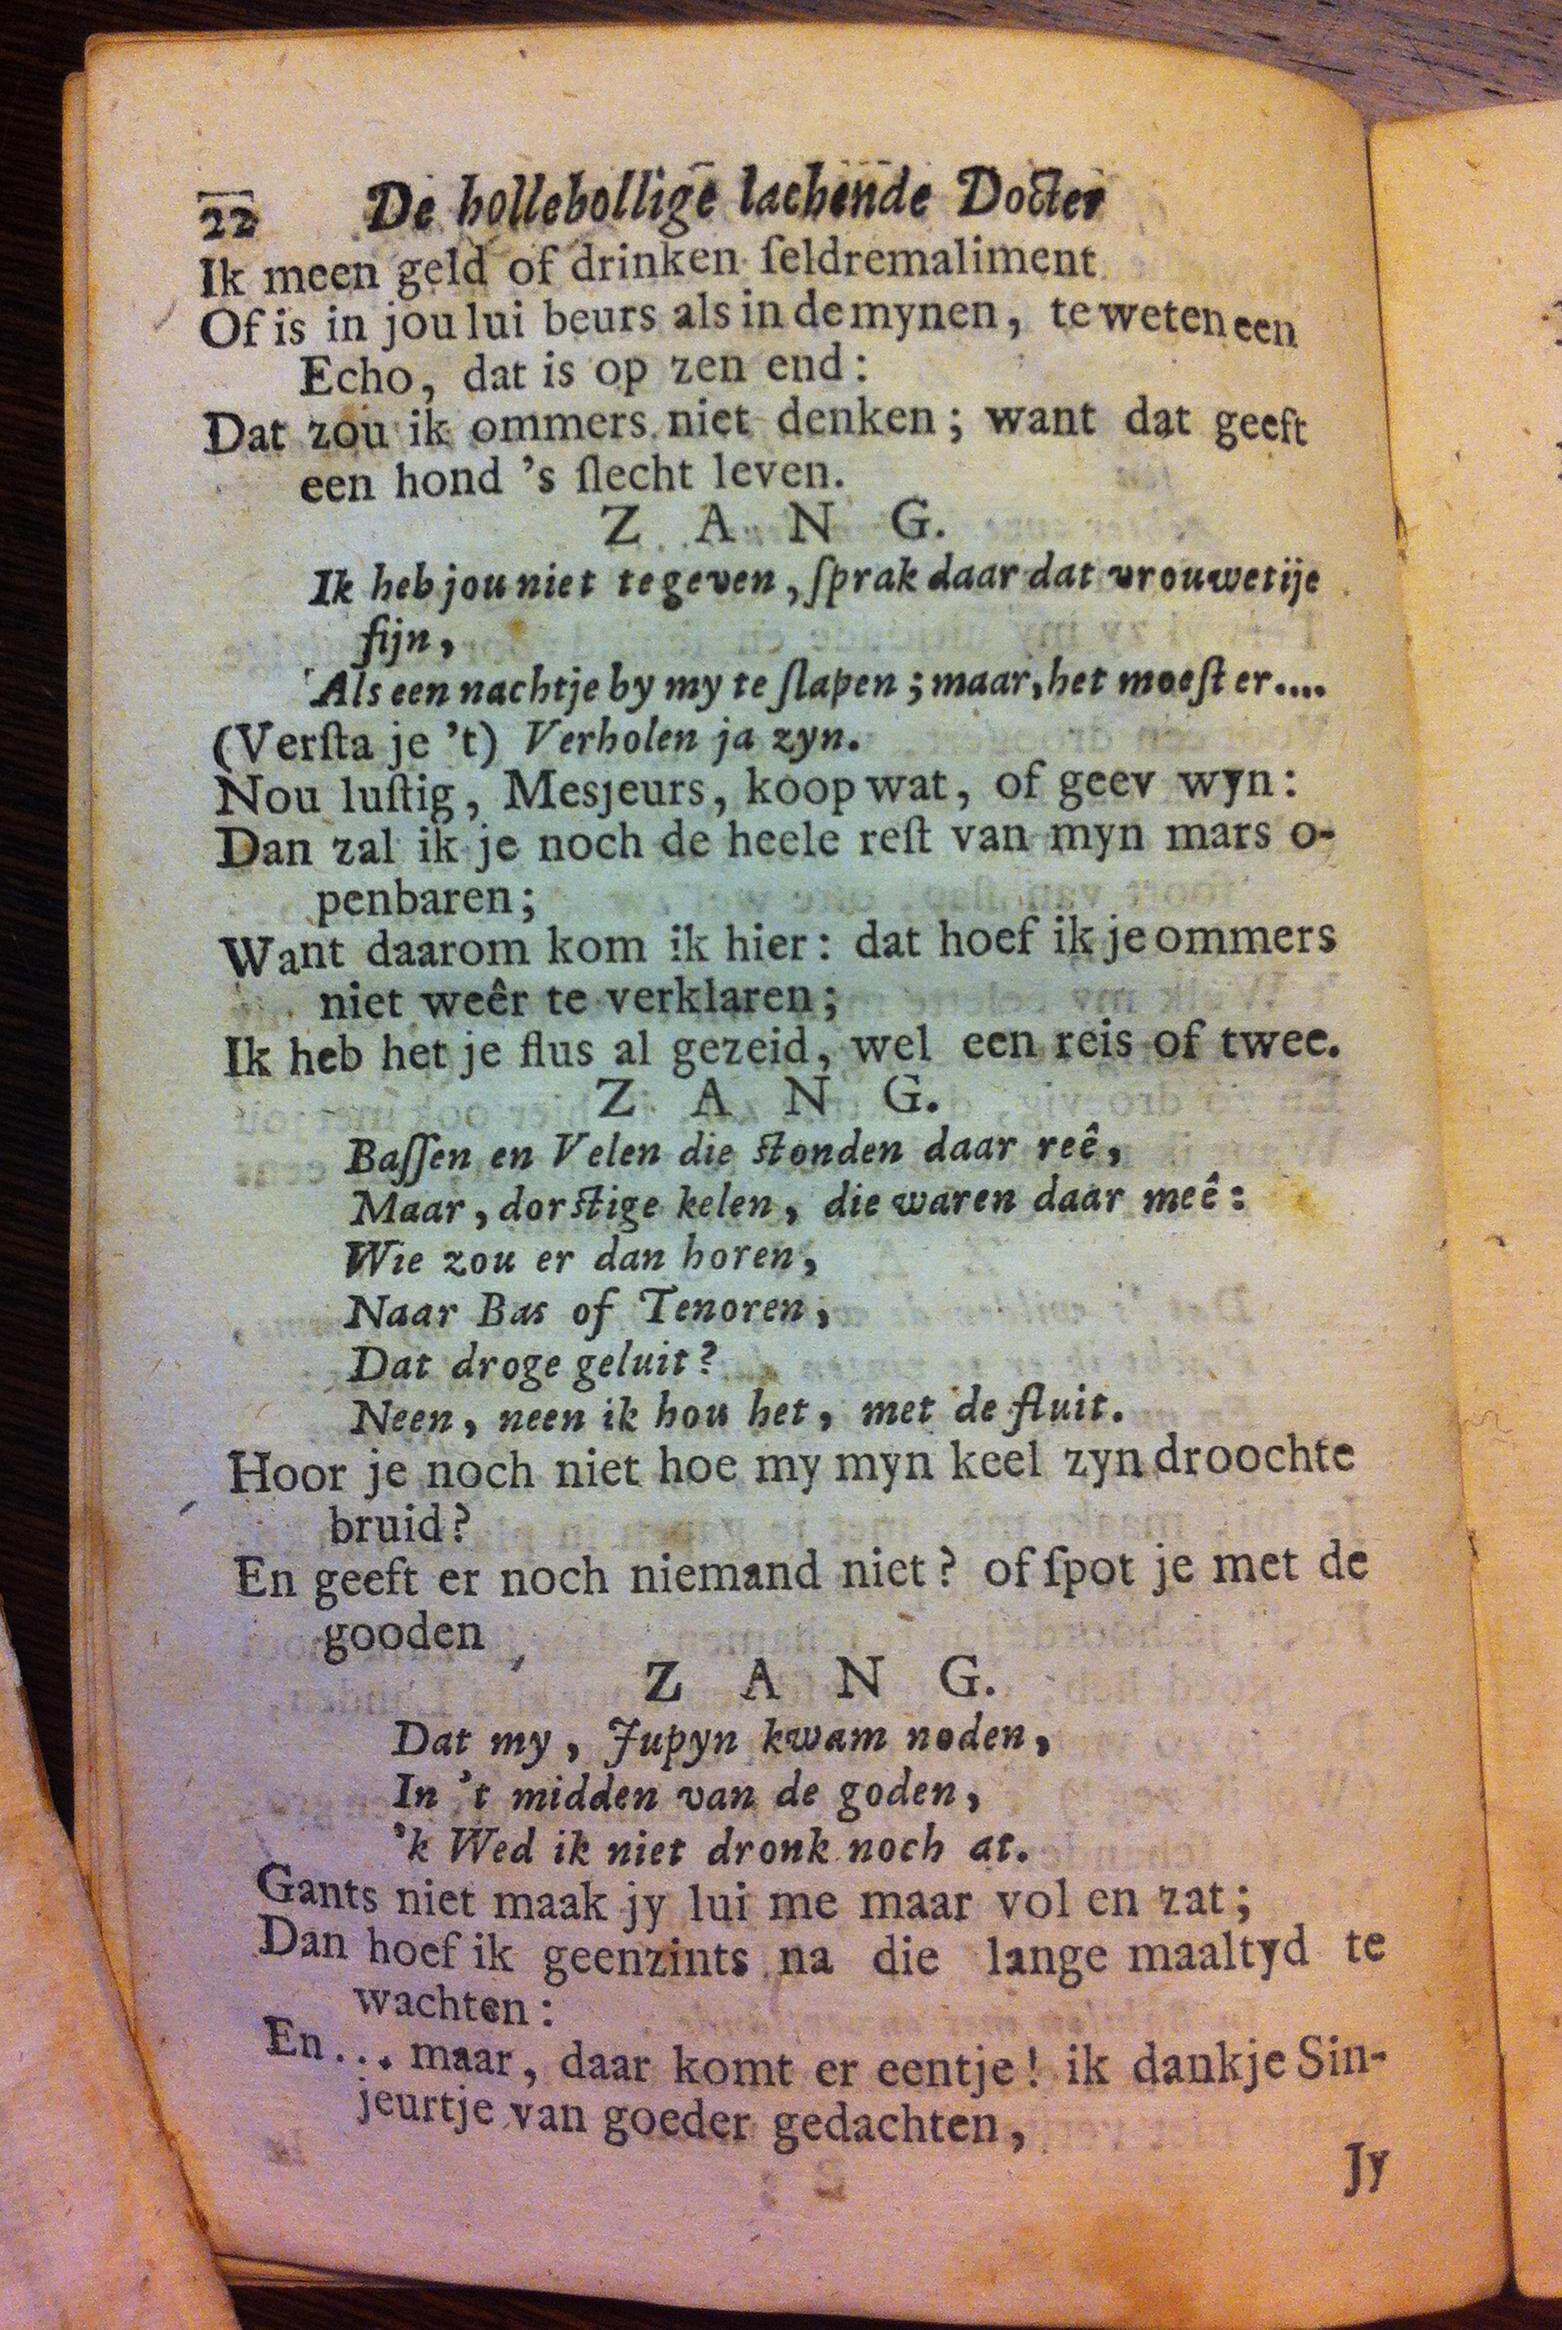 22 De hollebollige lachende Docter
Ik meen geld of drinken ſeldremaliment
Of is in jou lui beurs als in de mynen, te weten een
Echo, dat is op zen end:
Dat zou ik ommers niet denken; want dat geeft
een hond 's ſlecht leven.
Z A N G.
Ik heb jou niet te geven, ſprak daar dat vrouwetije
fijn,
Als een nachtje by my te ſlapen; maar, het moeſt er....
(Verſta je 't) Verholen ja zyn.
Nou luſtig, Mesjeurs, koop wat, of geev wyn:
Dan zal ik je noch de heele reſt van myn mars o-
penbaren;
Want daarom kom ik hier: dat hoef ik je ommers
niet weêr te verklaren;
Ik heb het je flus al gezeid, wel een reis of twee.
Z A N G.
Baſſen en Velen die ſtonden daar reê,
Maar, dorſtige kelen, die waren daar meê:
Wie zou er dan horen,
Naar Bas of Tenoren,
Dat droge geluit?
Neen, neen ik hou het, met de fluit.
Hoor je noch niet hoe my myn keel zyn droochte
bruid?
En geeft er noch niemand niet? of ſpot je met de
gooden
Z A N G.
Dat my, Jupyn kwam noden,
In 't midden van de goden,
'k Wed ik niet dronk noch at.
Gants niet maak jy lui me maar vol en zat;
Dan hoef ik geenzints na die lange maaltyd te
wachten:
En... maar, daar komt er eentje! ik dankje Sin-
jeurtje van goeder gedachten,
Jy